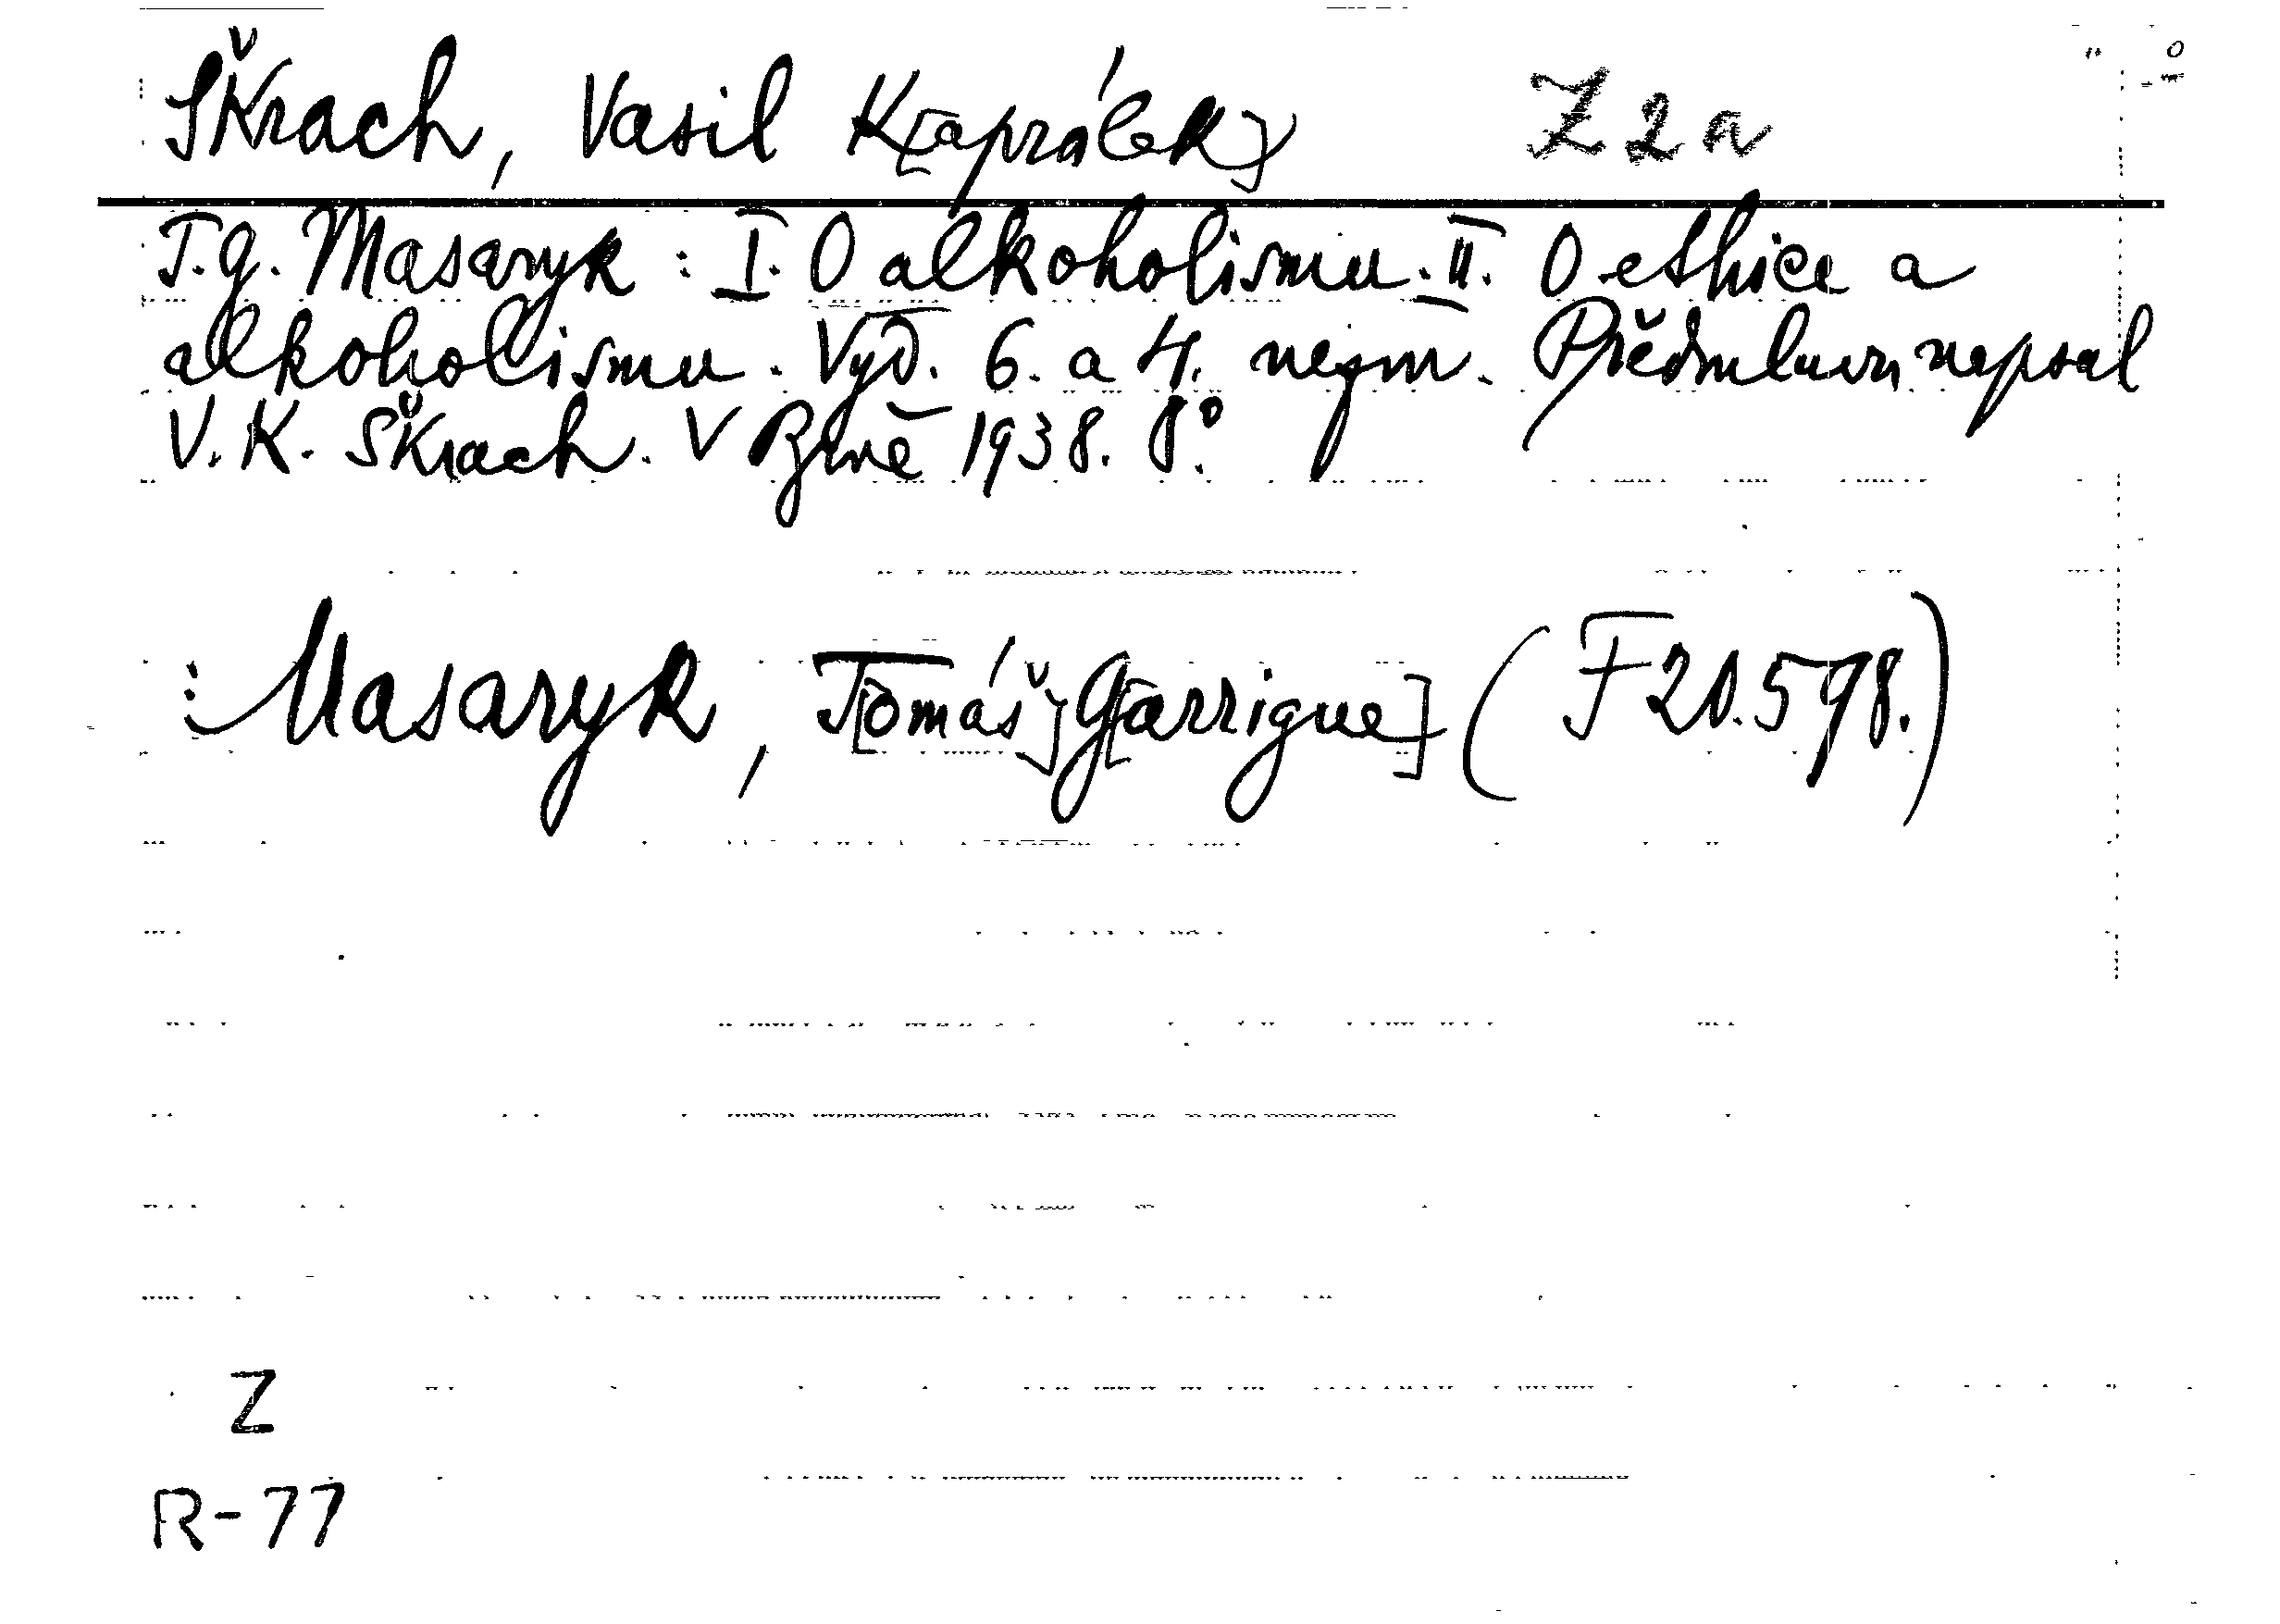 Škrach, Vasil K[aprálek] Z 2 a
T. G. Masaryk: I. O alkoholismu. II. O ethice a
alkoholismu. Vyd. 6. a 4. nezm. Předmluvu napsal
V. K. Škrach. V Brně 1938. 8°.
: Masaryk, T[omáš] G[arrigue] (F 20.598.)
Z
R-77